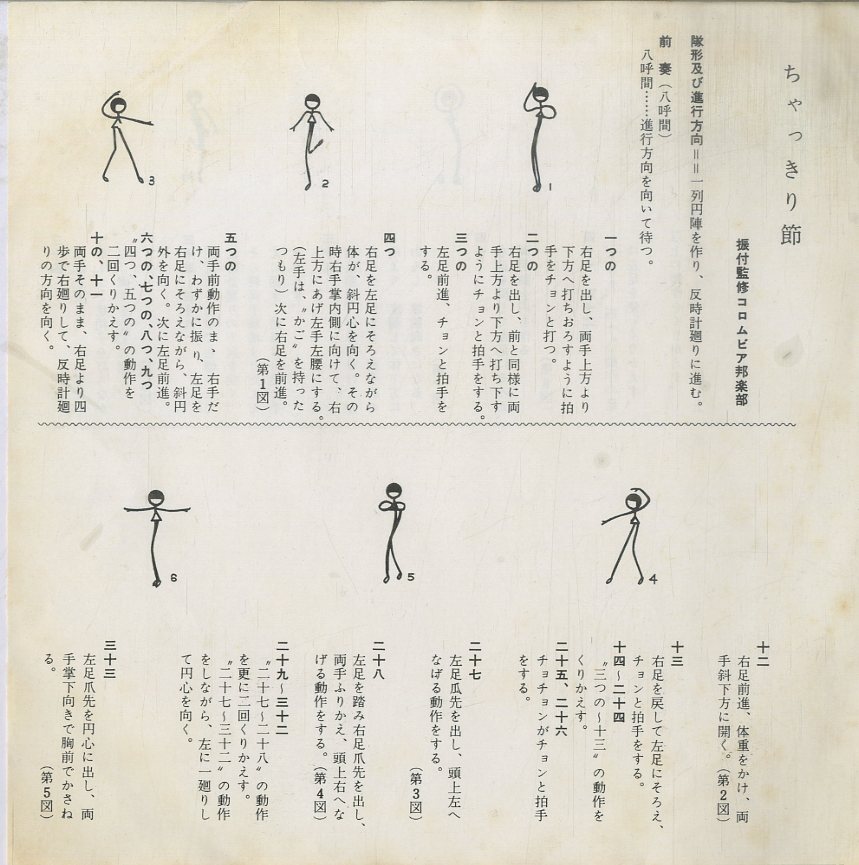 ちゃっきり節
振付監修コロムビア邦楽部
隊形及び進行方向＝＝一列円陣を作り、反時計廻りに進む。
前　奏（八呼間）
八呼間……進行方向を向いて待つ。
1
2
3
一つの
右足を出し、両手上方より
下方へ打ちおろすように拍
手をチョンと打つ。
二つの
右足を出し、前と同様に両
手上方より下方へ打ち下す
ようにチョンと拍手をする。
三つの
左足前進、チョンと拍手を
する。
四つ
右足を左足にそろえながら
体が、斜円心を向く。その
時右手掌内側に向けて、右
上方にあげ左手左腰にする。
（左手は、〝かご〟を持った
つもり）次に右足を前進。
（第1図）
五つの
両手前動作のまゝ、右手だ
け、わずかに振り、左足を
右足にそろえながら、斜円
外を向く。次に左足前進。
六つの、七つの、八つ、九つ
〝四つ、五つの〟の動作を
二回くりかえす。
十の、十一
両手そのまま、右足より四
歩で右廻りして、反時計廻
りの方向を向く。
4
5
6
十二
右足前進、体重をかけ、両
手斜下方に開く。（第2図）
十三
右足を戻して左足にそろえ、
チョンと拍手をする。
十四～二十四
〝三つの～十三〟の動作を
くりかえす。
二十五、二十六
チョチョンがチョンと拍手
をする。
二十七
左足爪先を出し、頭上左へ
なげる動作をする。
（第3図）
二十八
左足を踏み右足爪先を出し、
両手ふりかえ、頭上右へな
げる動作をする。（第4図）
二十九～三十二
〝二十七～二十八〟の動作
を更に二回くりかえす。
〝二十七～三十二〟の動作
をしながら、左に一廻りし
て円心を向く。
三十三
左足爪先を円心に出し、両
手掌下向きで胸前でかさね
る。
（第5図）